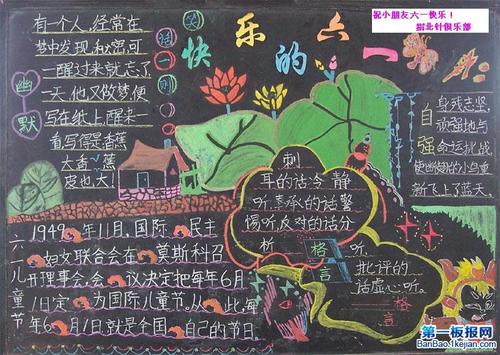 祝小朋友六一快乐！
指北针俱乐部
快乐的六一
笑话一则
幽默
有一个人，经常在
梦中发现秘密，可
一醒过来就忘了
一天，他又做梦，便
写在纸上，醒来一
看，写得是香蕉
大，香蕉
皮也大！
自强
身残志坚，
顽强地与
命运挑战
使断翅的小鸟重
新飞上了蓝天
刺
耳的话冷静
听，奉承的话警
惕听，反对的话分
析听，
批评的
话虚心听。
格言
格言
六一儿童节
1949年11月，国际民主
妇女联合会在莫斯科召
开理事会，会议决定把每年6月
1日定为国际儿童节。从此，每
年6月1日就是全国自己的节日。
第一板报网
BanBao.1kejian.com